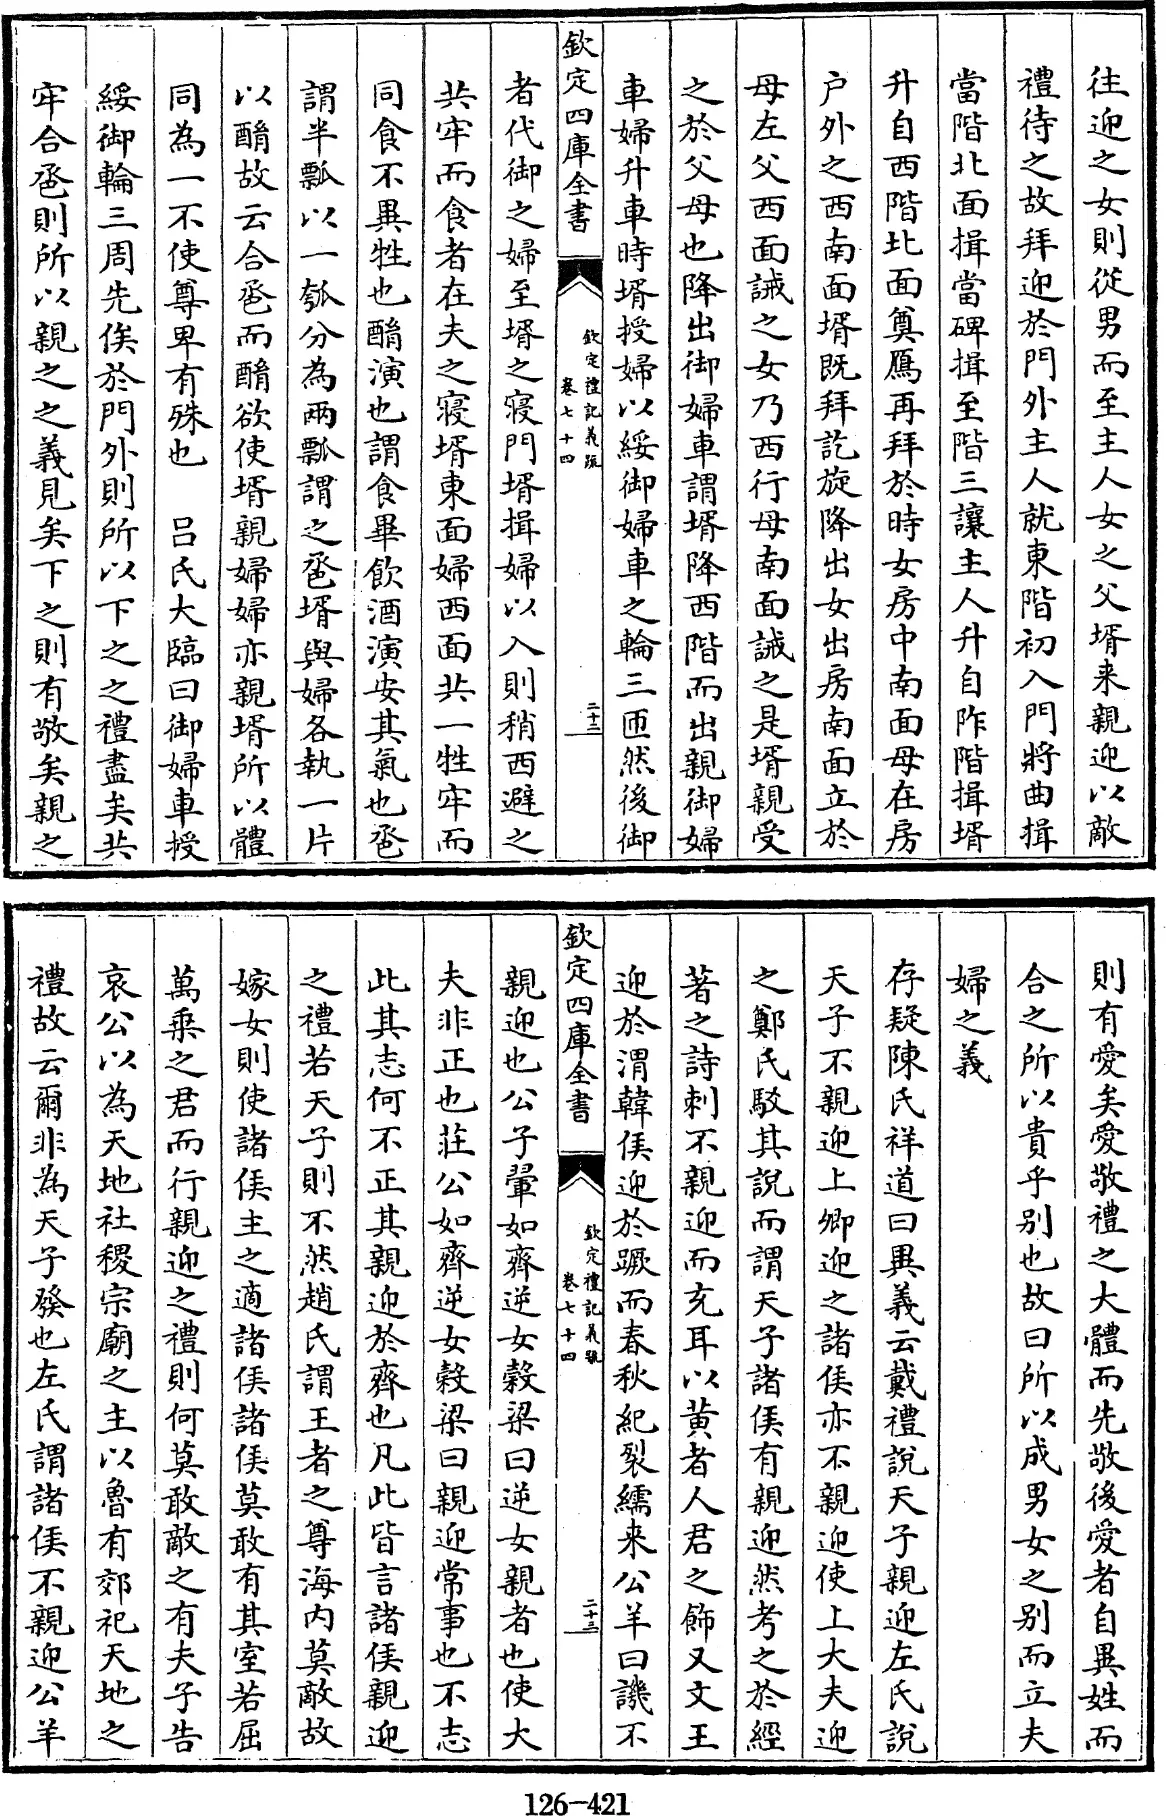 往迎之女則從男而至主人女之父壻来親迎以敵
禮待之故拜迎於門外主人就東階初入門將曲揖
當階北面揖當碑揖至階三讓主人升自阼階揖壻
升自西階北面奠鴈再拜於時女房中南面母在房
户外之西南面壻既拜訖旋降出女出房南面立於
母左父西面誡之女乃西行母南面誡之是壻親受
之於父母也降出御婦車謂壻降西階而出親御婦
車婦升車時壻授婦以綏御婦車之輪三匝然後御
欽定四庫全書
欽定禮記義疏
卷七十四
二十二
者代御之婦至壻之寢門壻揖婦以入則稍西避之
共牢而食者在夫之寢壻東面婦西面共一牲牢而
同食不異牲也酳演也謂食畢飲酒演安其氣也卺
謂半瓢以一瓠分為兩瓢謂之卺壻與婦各執一片
以酳故云合卺而酳欲使壻親婦婦亦親壻所以體
同為一不使尊卑有殊也 吕氏大臨曰御婦車授
綏御輪三周先俟於門外則所以下之之禮盡矣共
牢合卺則所以親之之義見矣下之則有敬矣親之
則有愛矣愛敬禮之大體而先敬後愛者自異姓而
合之所以貴乎别也故曰所以成男女之别而立夫
婦之義
存疑陳氏祥道曰異義云戴禮說天子親迎左氏說
天子不親迎上卿迎之諸侯亦不親迎使上大夫迎
之鄭氏駁其說而謂天子諸侯有親迎然考之於經
著之詩刺不親迎而充耳以黄者人君之飾又文王
迎於渭韓侯迎於蹶而春秋紀裂繻来公羊曰譏不
欽定四庫全書
欽定禮記義疏
卷七十四
二十三
親迎也公子翬如齊逆女榖梁曰逆女親者也使大
夫非正也莊公如齊逆女榖梁曰親迎常事也不志
此其志何不正其親迎於齊也凡此皆言諸侯親迎
之禮若天子則不然趙氏謂王者之尊海内莫敵故
嫁女則使諸侯主之適諸侯諸侯莫敢有其室若屈
萬乘之君而行親迎之禮則何莫敢敵之有夫子告
哀公以為天地社稷宗廟之主以魯有郊祀天地之
禮故云爾非為天子發也左氏謂諸侯不親迎公羊
126-421